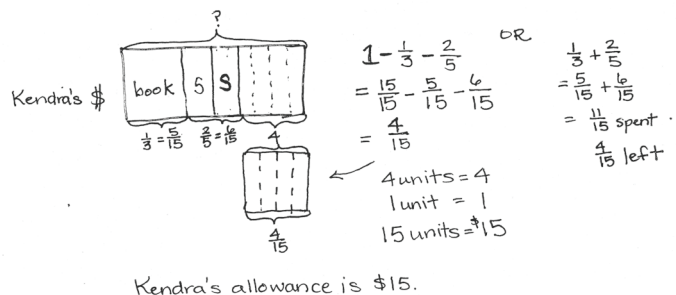 ?
Kendra's $
book 5 S
1/3 = 5/15 2/5 = 6/15 4
4/15
1 - 1/3 - 2/5
= 15/15 - 5/15 - 6/15
= 4/15
4 units = 4
1 unit = 1
15 units = $15
OR
1/3 + 2/5
= 5/15 + 6/15
= 11/15 spent.
4/15 left
Kendra's allowance is $15.